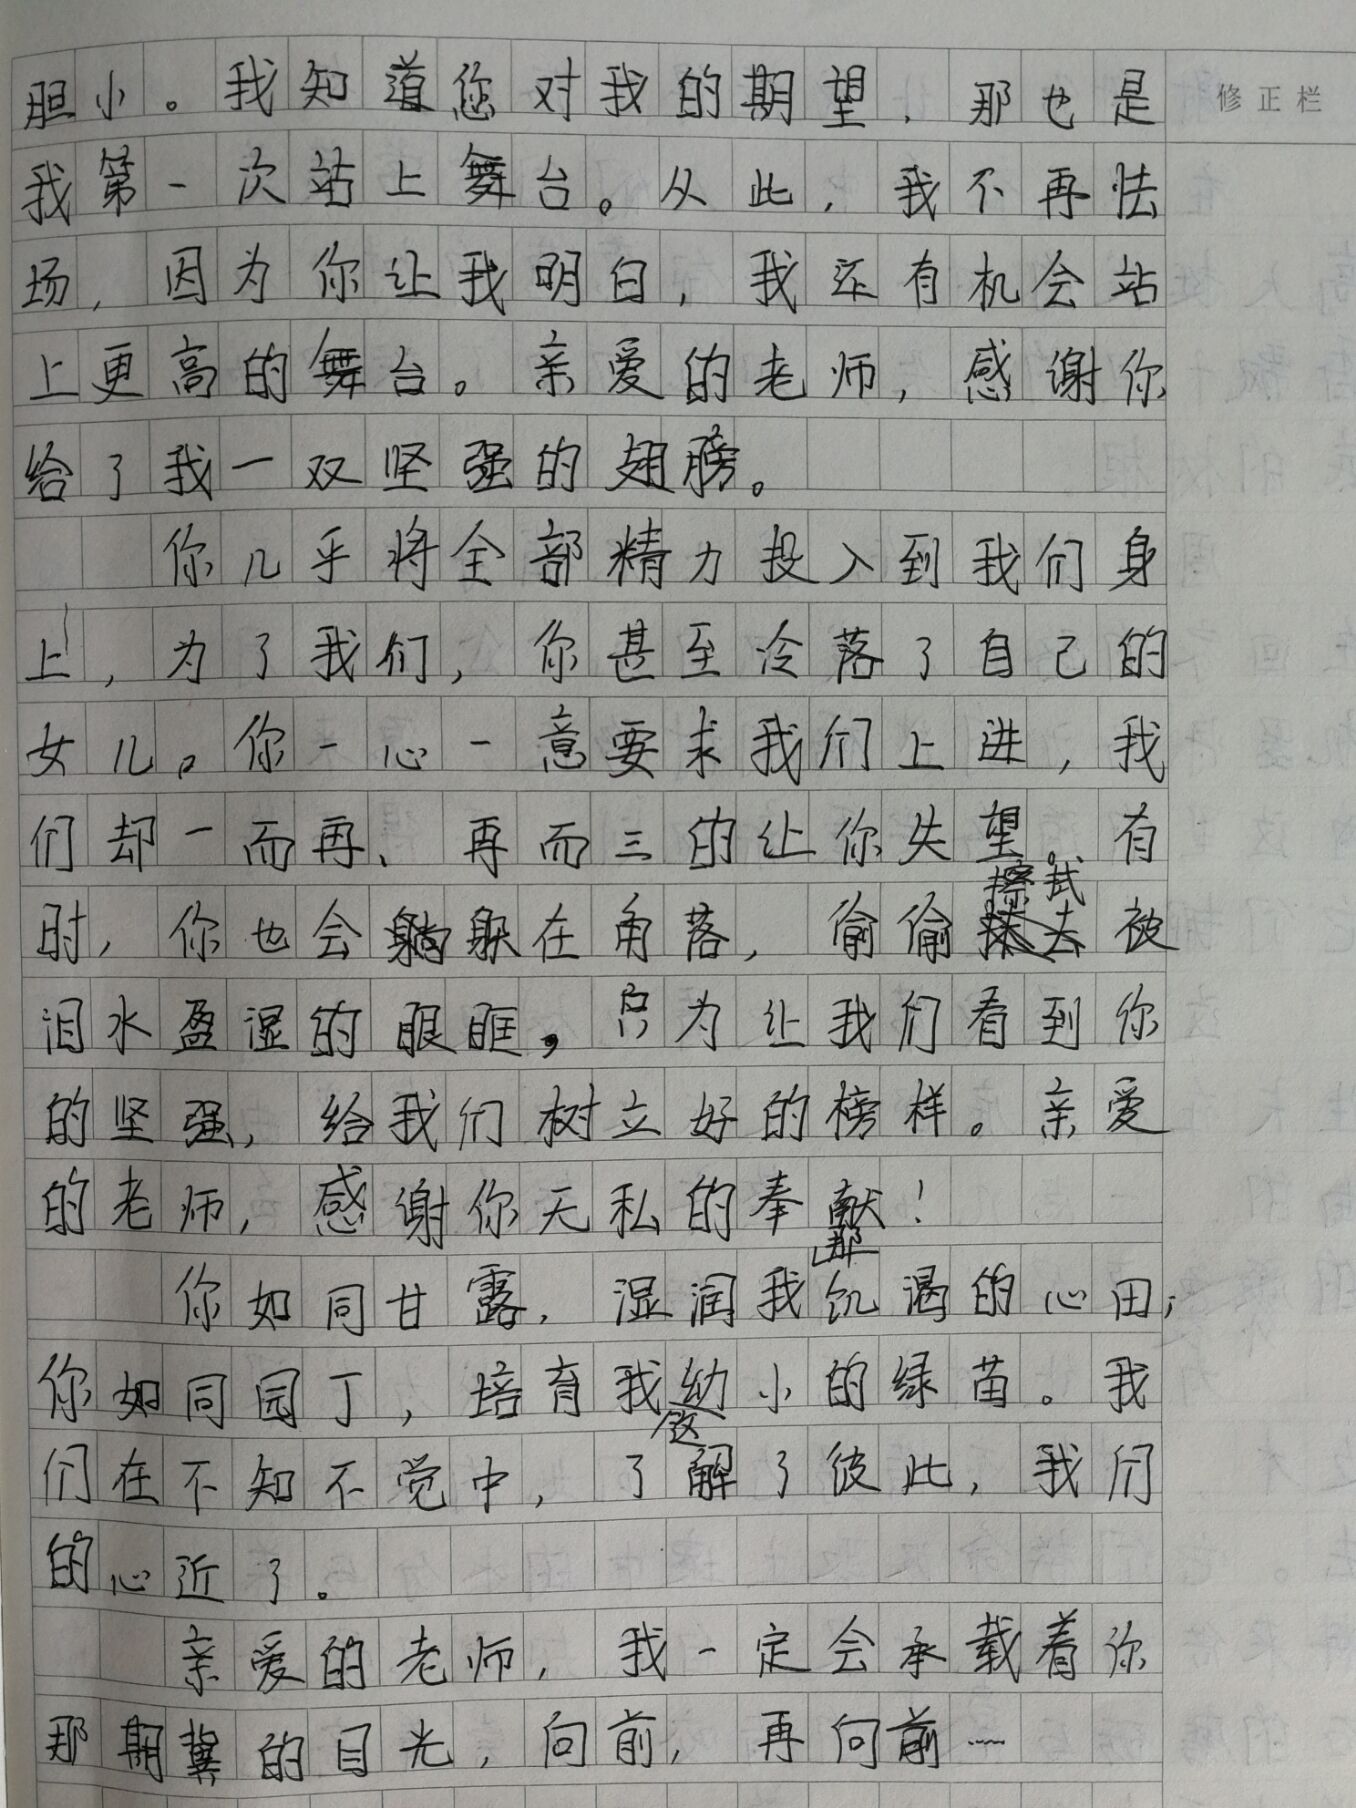 胆小。我知道您对我的期望，那也是
修正栏
我第一次站上舞台。从此，我不再怯
场，因为你让我明白，我还有机会站
上更高的舞台。亲爱的老师，感谢你
给了我一双坚强的翅膀。
你几乎将全部精力投入到我们身
上，为了我们，你甚至冷落了自己的
女儿。你一心一意要求我们上进，我
们却一而再、再而三的让你失望。有
时，你也会躲在角落，偷偷擦拭被
泪水盈湿的眼眶，只为让我们看到你
的坚强，给我们树立好的榜样。亲爱
的老师，感谢你无私的奉献！
你如同甘露，湿润我那饥渴的心田；
你如同园丁，培育我这幼小的绿苗。我
们在不知不觉中，了解了彼此，我们
的心近了。
亲爱的老师，我一定会承载着你
那期冀的目光，向前，再向前……